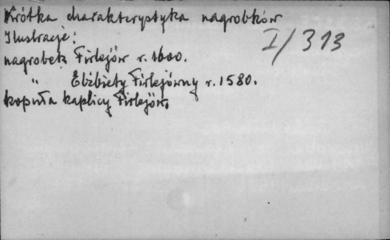 Krótka charakterystyka nagrobków
Ilustracje:
I/313
nagrobek Firlejów r. 1600.
" Elżbiety Firlejówny r. 1580.
kopuła kaplicy Firlejów